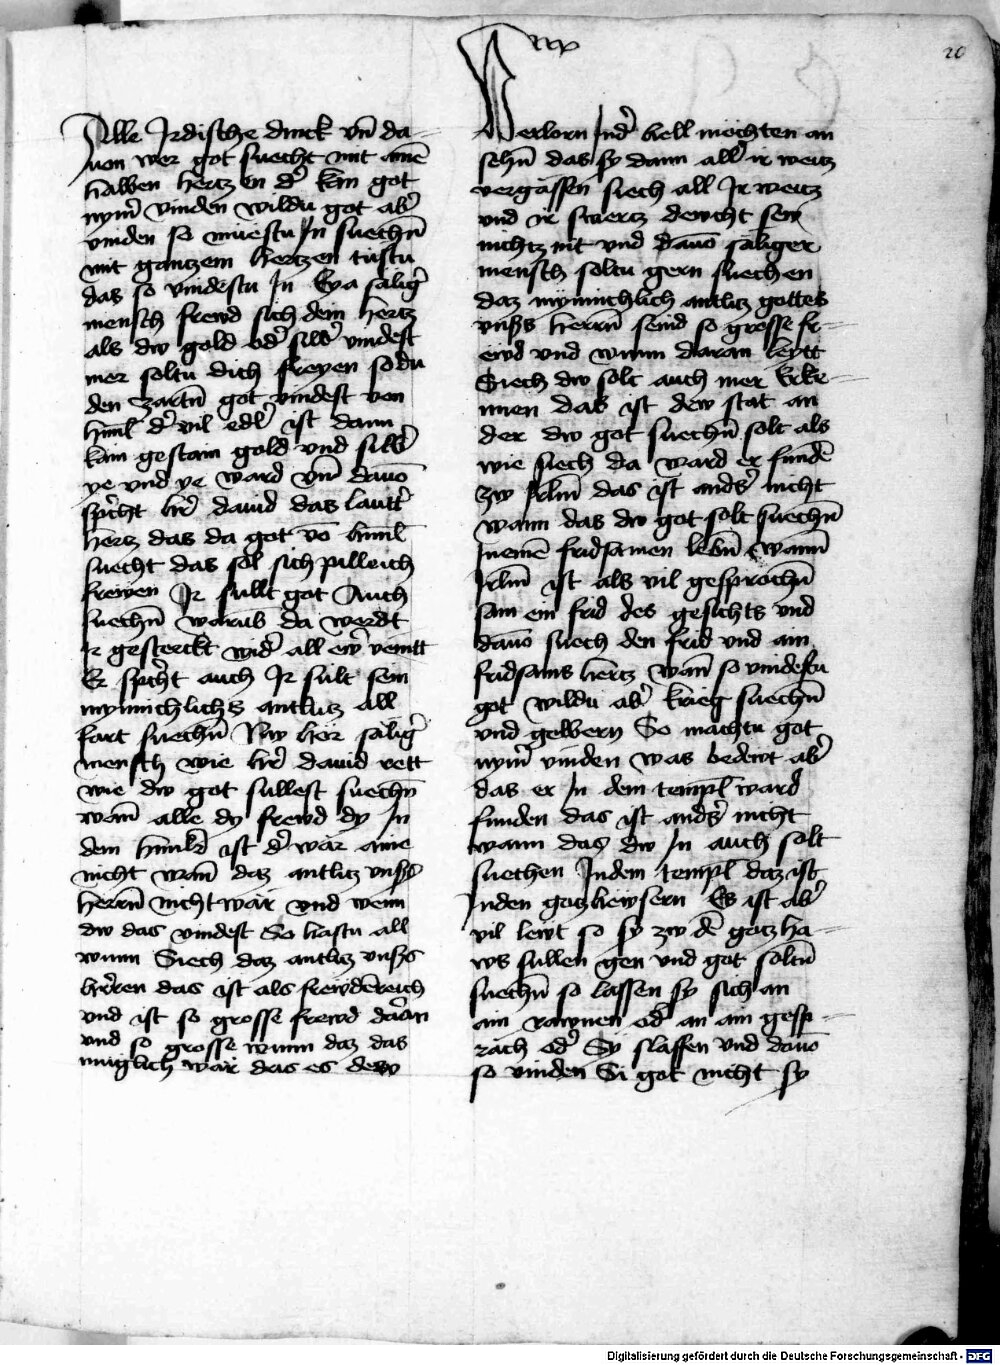 xx
20
Alle Irdische dinck vñ da-
uon wer got suecht mit ainē
halben hertzen d' kan got
nym̄ vinden wildu got ab'
vinden so muestu In suechn̄
mit gantzem hertzen tustu
das so vindestu In Eya sälig'
mensch frewd sich dein hertz
als dw gold od' silb' vindest
mer soltu dich freyen so du
den zartn̄ got vindest von
himl d' vil edl' ist dann
kain gestain gold vnd silb'
ye vnd ye ward vn̄ dauō
sp'cht h'r dauid das laut'
hertz das da got vō himl
suecht das sol sich pilleich
frewen Ir sullt got Auch
suechn̄ warūb da werdt
ir gesterckt wid' all ew'
Er sp'cht auch Ir sült sein
mynnichlichs antlutz all
fart suechn̄ Nw hör sälig'
mensch wie h'r dauid rett
wie dw got sullest suechn̄
wan̄ alle dy frewd dy In
dem himlr' ist d' wär aine
nicht wan̄ daz antlitz vnß's
herrn̄ nicht wär vnd wenn
dw das vindest So hastu all
wunn Siech daz antlitz vnß's
h'rren das ist als frewdēreich
vnd ist so grosse frewd daran
vnd so grosse wunn daz das
muglich wär das es dew
Verlorn Ind' hell möchten an
sehn̄ das sy dann all' ir weitz
vergässen siech all Ir weitz
vnd ir smertz dewcht sew
nichtz nit vnd dauō säliger
mensch soltu gern suechen
daz mynnichlich antlitz gottes
vnß's herrn̄ seind so grosse fr-
ewd vnd wunn daran leytt
Siech dw solt auch mer erke-
nnen das ist dew stat an
der dw got suechn̄ solt als
wie siech da ward er fundē
zw Irlm̄ das ist and's nicht
wann das dw got solt suechn̄
Inemē fridsamen lebn̄ wann
Irlm̄ ist als vil gesprochn̄
sam ein frid des gesichts vnd
dauō suech den frid vnd ain
fridsams hertz wan̄ so vindestu
got wildu ab' krieg suechn̄
vnd gelbern So machtu got
nym̄ vinden was bedewt ab'
das er In dem templ ward
funden das ist and's nicht
wann das dw In auch solt
suechen Indem templ daz ist
Inden gotzhewsern Es ist ab'
vil lewt so sy zw dē gotzha-
ws sullen gen vnd got soltn̄
suechn̄ so lassen sy sich an
ain rawnen od' an ain gesp-
räch od' Sy slaffen vnd dauō
so vinden Si got nicht sy
Digitalisierung gefördert durch die Deutsche Forschungsgemeinschaft - DFG